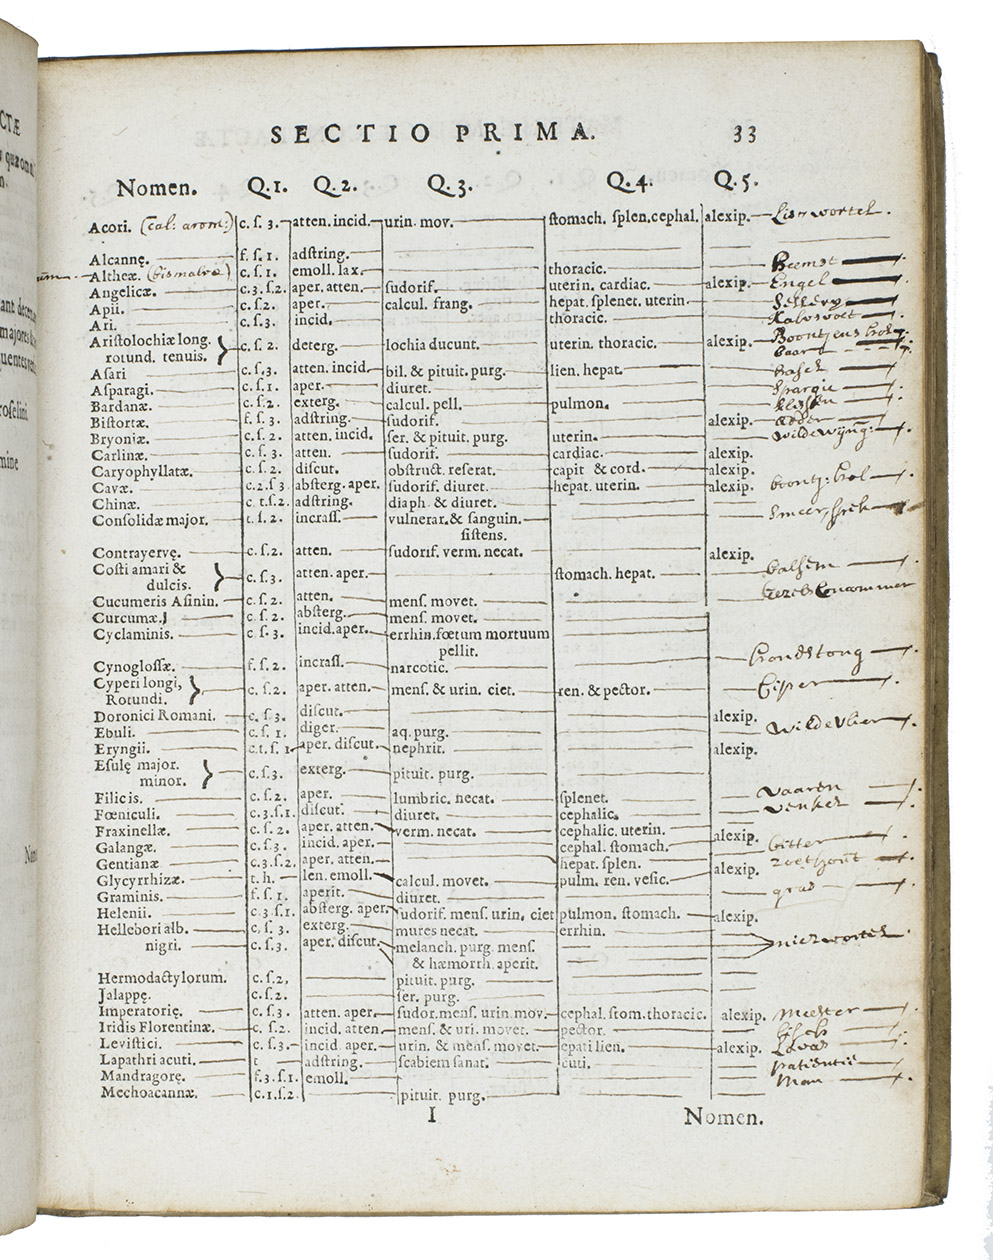 CTÆ
SECTIO PRIMA. 33
Nomen. Q.1. Q.2. Q.3. Q.4. Q.5.
Acori. (cal: arom:) c. ſ. 3. atten. incid. urin. mov. ſtomach. ſplen. cephal. alexip. Lisrwortel.
Alcannę. f. ſ. 1. adſtring.
Altheæ. (bismalvæ) c. ſ. 1. emoll. lax. thoracic. Heemst
Angelicæ. c. 3. ſ. 2. aper. atten. ſudorif. uterin. cardiac. alexip. Engel
Apii. c. ſ. 2. aper. calcul. frang. hepat. ſplenet. uterin. Sellery
Ari. c. ſ. 3. incid. thoracic. Kalvsvoet
Ariſtolochiæ long.
rotund. tenuis. } c. ſ. 2. deterg. lochia ducunt. uterin. thoracic. alexip.
Aſari c. ſ. 3. atten. incid. bil. & pituit. purg. lien. hepat.
Aſparagi. c. ſ. 1. aper. diuret. Spargie
Bardanæ. c. ſ. 2. exterg. calcul. pell. pulmon. klissen
Biſtortæ. f. ſ. 3. adſtring. ſudorif. alexip. adder
Bryoniæ. c. ſ. 2. atten. incid. ſer. & pituit. purg. uterin. wilde wijng:
Carlinæ. c. ſ. 3. atten. ſudorif. cardiac. alexip.
Caryophyllatæ. c. ſ. 2. diſcut. obſtruct. reſerat. capit & cord. alexip.
Cavæ. c. 2. ſ 3. abſterg. aper. ſudorif. diuret. hepat. uterin. alexip. boontj: hol
Chinæ. c t. ſ. 2. adſtring. diaph & diuret.
Conſolidæ major. t. ſ. 2. incraſſ. vulnerar. & ſanguin.
ſiſtens.
Contrayervę. c. ſ. 2. atten. ſudorif. verm. necat. alexip.
Coſti amari &
dulcis. } c. ſ. 3. atten. aper. ſtomach. hepat. balsem
Cucumeris Aſinin. c. ſ. 2. atten. menſ. movet.
Curcumæ. c. ſ. 2. abſterg. menſ. movet.
Cyclaminis. c ſ. 3. incid. aper. errhin. fœtum mortuum
pellit.
Cynogloſſæ. f. ſ. 2. incraſſ. narcotic. hondstong
Cyperi longi,
Rotundi. } c. ſ. 2. aper. atten. menſ. & urin. ciet. ren. & pector. Ciper
Doronici Romani. c. ſ. 3. diſcut. alexip.
Ebuli. c. ſ. 1. diger. aq. purg. wilde vlier
Eryngii. c. t. ſ. 1 aper. diſcut. nephrit. alexip.
Eſulę major.
minor. } c. ſ. 3. exterg. pituit. purg.
Filicis. c. ſ. 2. aper. lumbric. necat. ſplenet. vaaren
Fœniculi. c. 3. ſ. 1. diſcut. diuret. cephalic. venkel
Fraxinellæ. c. ſ. 2. aper. atten. verm. necat. cephalic. uterin. alexip.
Galangæ. c. ſ. 3. incid. aper. cephal. ſtomach. bitter
Gentianæ c. 3. ſ. 2. aper. atten. hepat. ſplen. alexip. zoethout
Glycyrrhizæ. t. h. len. emoll. calcul. movet. pulm. ren. veſic.
Graminis. f. ſ. 1. aperit. diuret. gras
Helenii. c. 3 ſ. 1. abſterg. aper. ſudorif. menſ. urin, ciet pulmon. ſtomach. alexip.
Hellebori alb. c, ſ. 3. exterg. mures necat. errhin.
nigri. c. ſ. 3. aper. diſcut. melanch. purg. menſ nieswortel
& hæmorrh. aperit.
Hermodactylorum. c. ſ. 2, pituit. purg.
Jalappę. c. ſ. 2. ſer. purg.
Imperatorię. c. ſ. 3. atten. aper. ſudor. menſ. urin. mov. cephal. ſtom. thoracic. alexip. meester
Iridis Florentinæ. c. ſ. 2. incid. atten. menſ. & uri. movet. pector.
Leviſtici. c. ſ. 3. incid. aper. urin. & menſ. movet. epati lien. alexip. Lavas
Lapathri acuti. t adſtring. ſcabiem ſanat. cuti. patientie
Mandragorę. f. 3. ſ. 1. emoll. Man
Mechoacannæ. c. 1. ſ. 2. pituit. purg.
I Nomen.